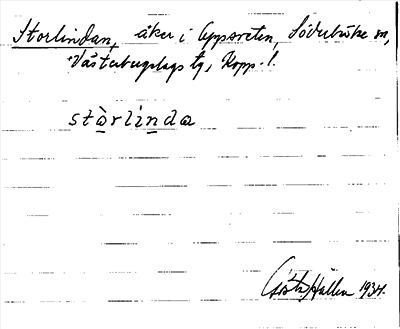 Storlindan, åker i Uppsveten, Söderbärke sn,
Västerbergslags tg, Kopp. l.
stàrlinda
Gösta Hallén 1934.